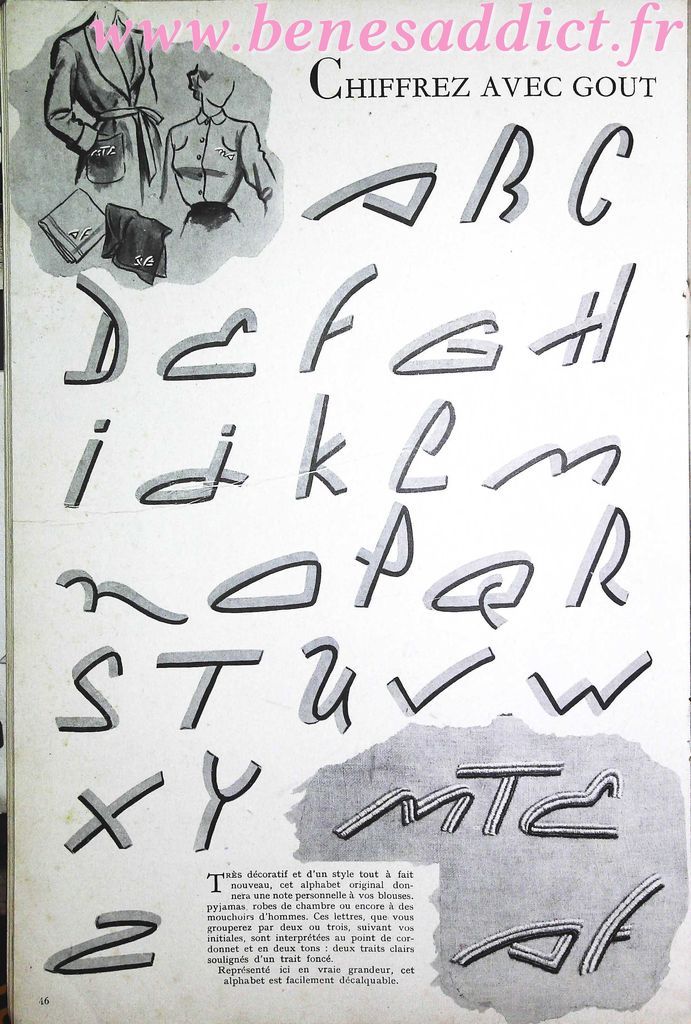 www.benesaddict.fr
CHIFFREZ AVEC GOUT
MTE
MA
AF
SFE
A B C
D E F G H
i j k l m
n O P Q R
S T U V W
X Y
MTE
TRÈS décoratif et d'un style tout à fait
nouveau, cet alphabet original don-
nera une note personnelle à vos blouses,
pyjamas, robes de chambre ou encore à des
mouchoirs d'hommes. Ces lettres, que vous
grouperez par deux ou trois, suivant vos
initiales, sont interprétées au point de cor-
donnet et en deux tons : deux traits clairs
soulignés d'un trait foncé.
Représenté ici en vraie grandeur, cet
alphabet est facilement décalquable.
Z
AF
46